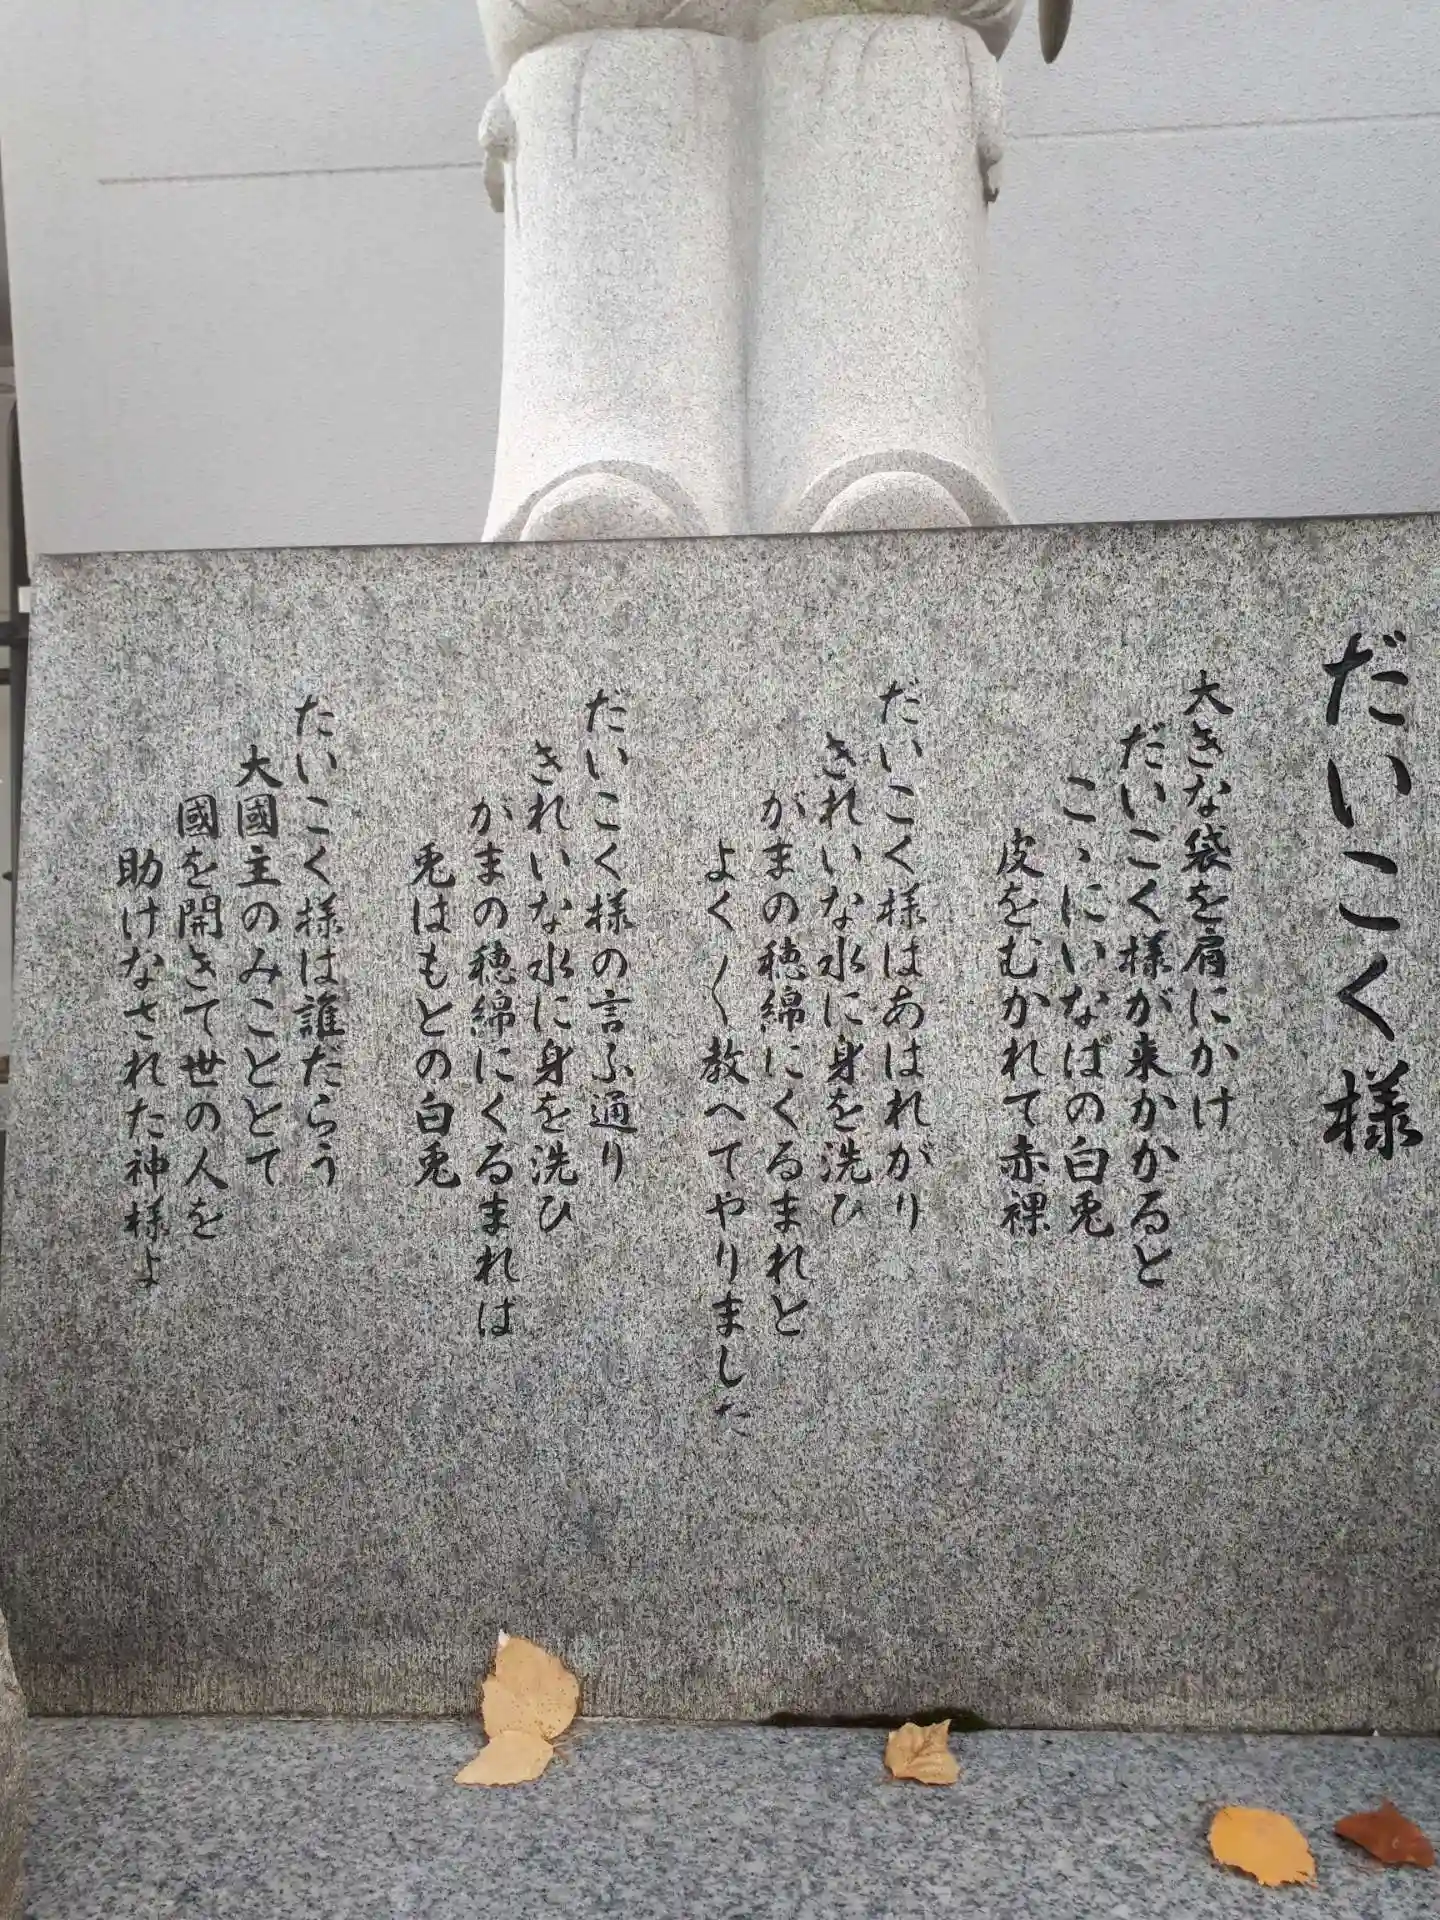 だいこく様
大きな袋を肩にかけ
だいこく様が来かかると
こゝにいなばの白兎
皮をむかれて赤裸
だいこく様はあはれがり
きれいな水に身を洗ひ
がまの穂綿にくるまれと
よく〳〵教へてやりました
だいこく様の言ふ通り
きれいな水に身を洗ひ
がまの穂綿にくるまれば
兎はもとの白兎
だいこく様は誰だらう
大國主のみこととて
國を開きて世の人を
助けなされた神様よ